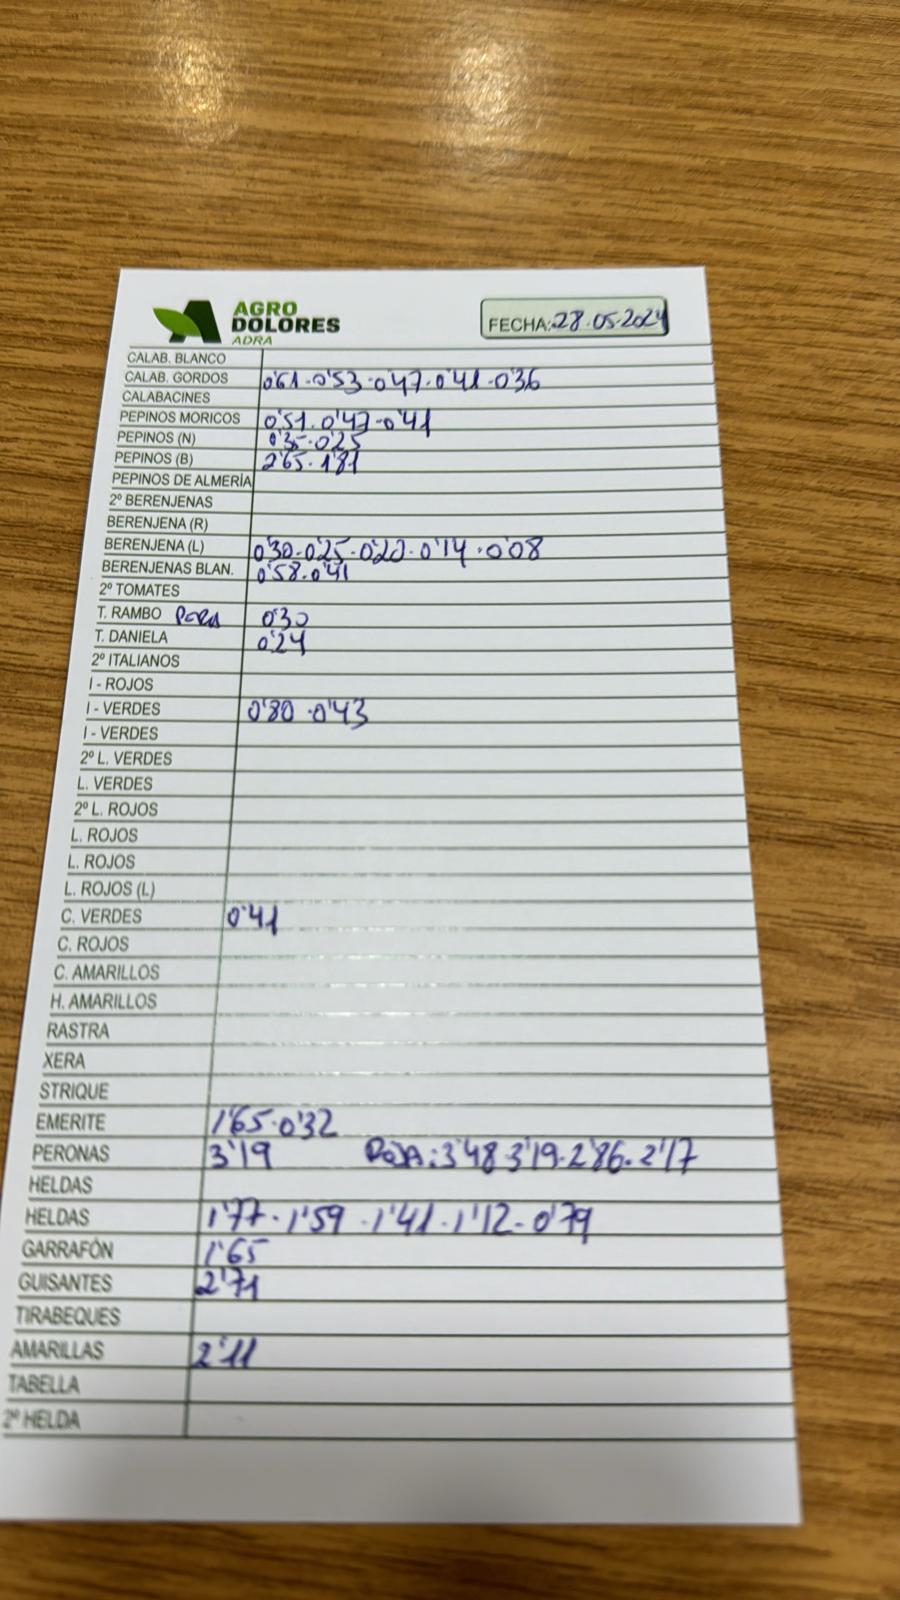 AGRO
DOLORES
ADRA
FECHA: 28.05.2024
CALAB. BLANCO
CALAB. GORDOS 0'61-0'53-0'47-0'41-0'36
CALABACINES
PEPINOS MORICOS 0'51.0'47-0'41
PEPINOS (N) 0'35-0'25
PEPINOS (B) 2'65-1'81
PEPINOS DE ALMERÍA
2º BERENJENAS
BERENJENA (R)
BERENJENA (L) 0'30-0'25-0'20-0'14-0'08
BERENJENAS BLAN. 0'58-0'41
2º TOMATES
T. RAMBO PERA 0'30
T. DANIELA 0'24
2º ITALIANOS
I - ROJOS
I - VERDES 0'80-0'43
I - VERDES
2º L. VERDES
L. VERDES
2º L. ROJOS
L. ROJOS
L. ROJOS
L. ROJOS (L)
C. VERDES 0'41
C. ROJOS
C. AMARILLOS
H. AMARILLOS
RASTRA
XERA
STRIQUE
EMERITE 1'65-0'32
PERONAS 3'19 ROJA: 3'48 3'19-2'86-2'17
HELDAS
HELDAS 1'77-1'59-1'41-1'12-0'79
GARRAFÓN 1'65
GUISANTES 2'71
TIRABEQUES
AMARILLAS 2'11
TABELLA
2º HELDA